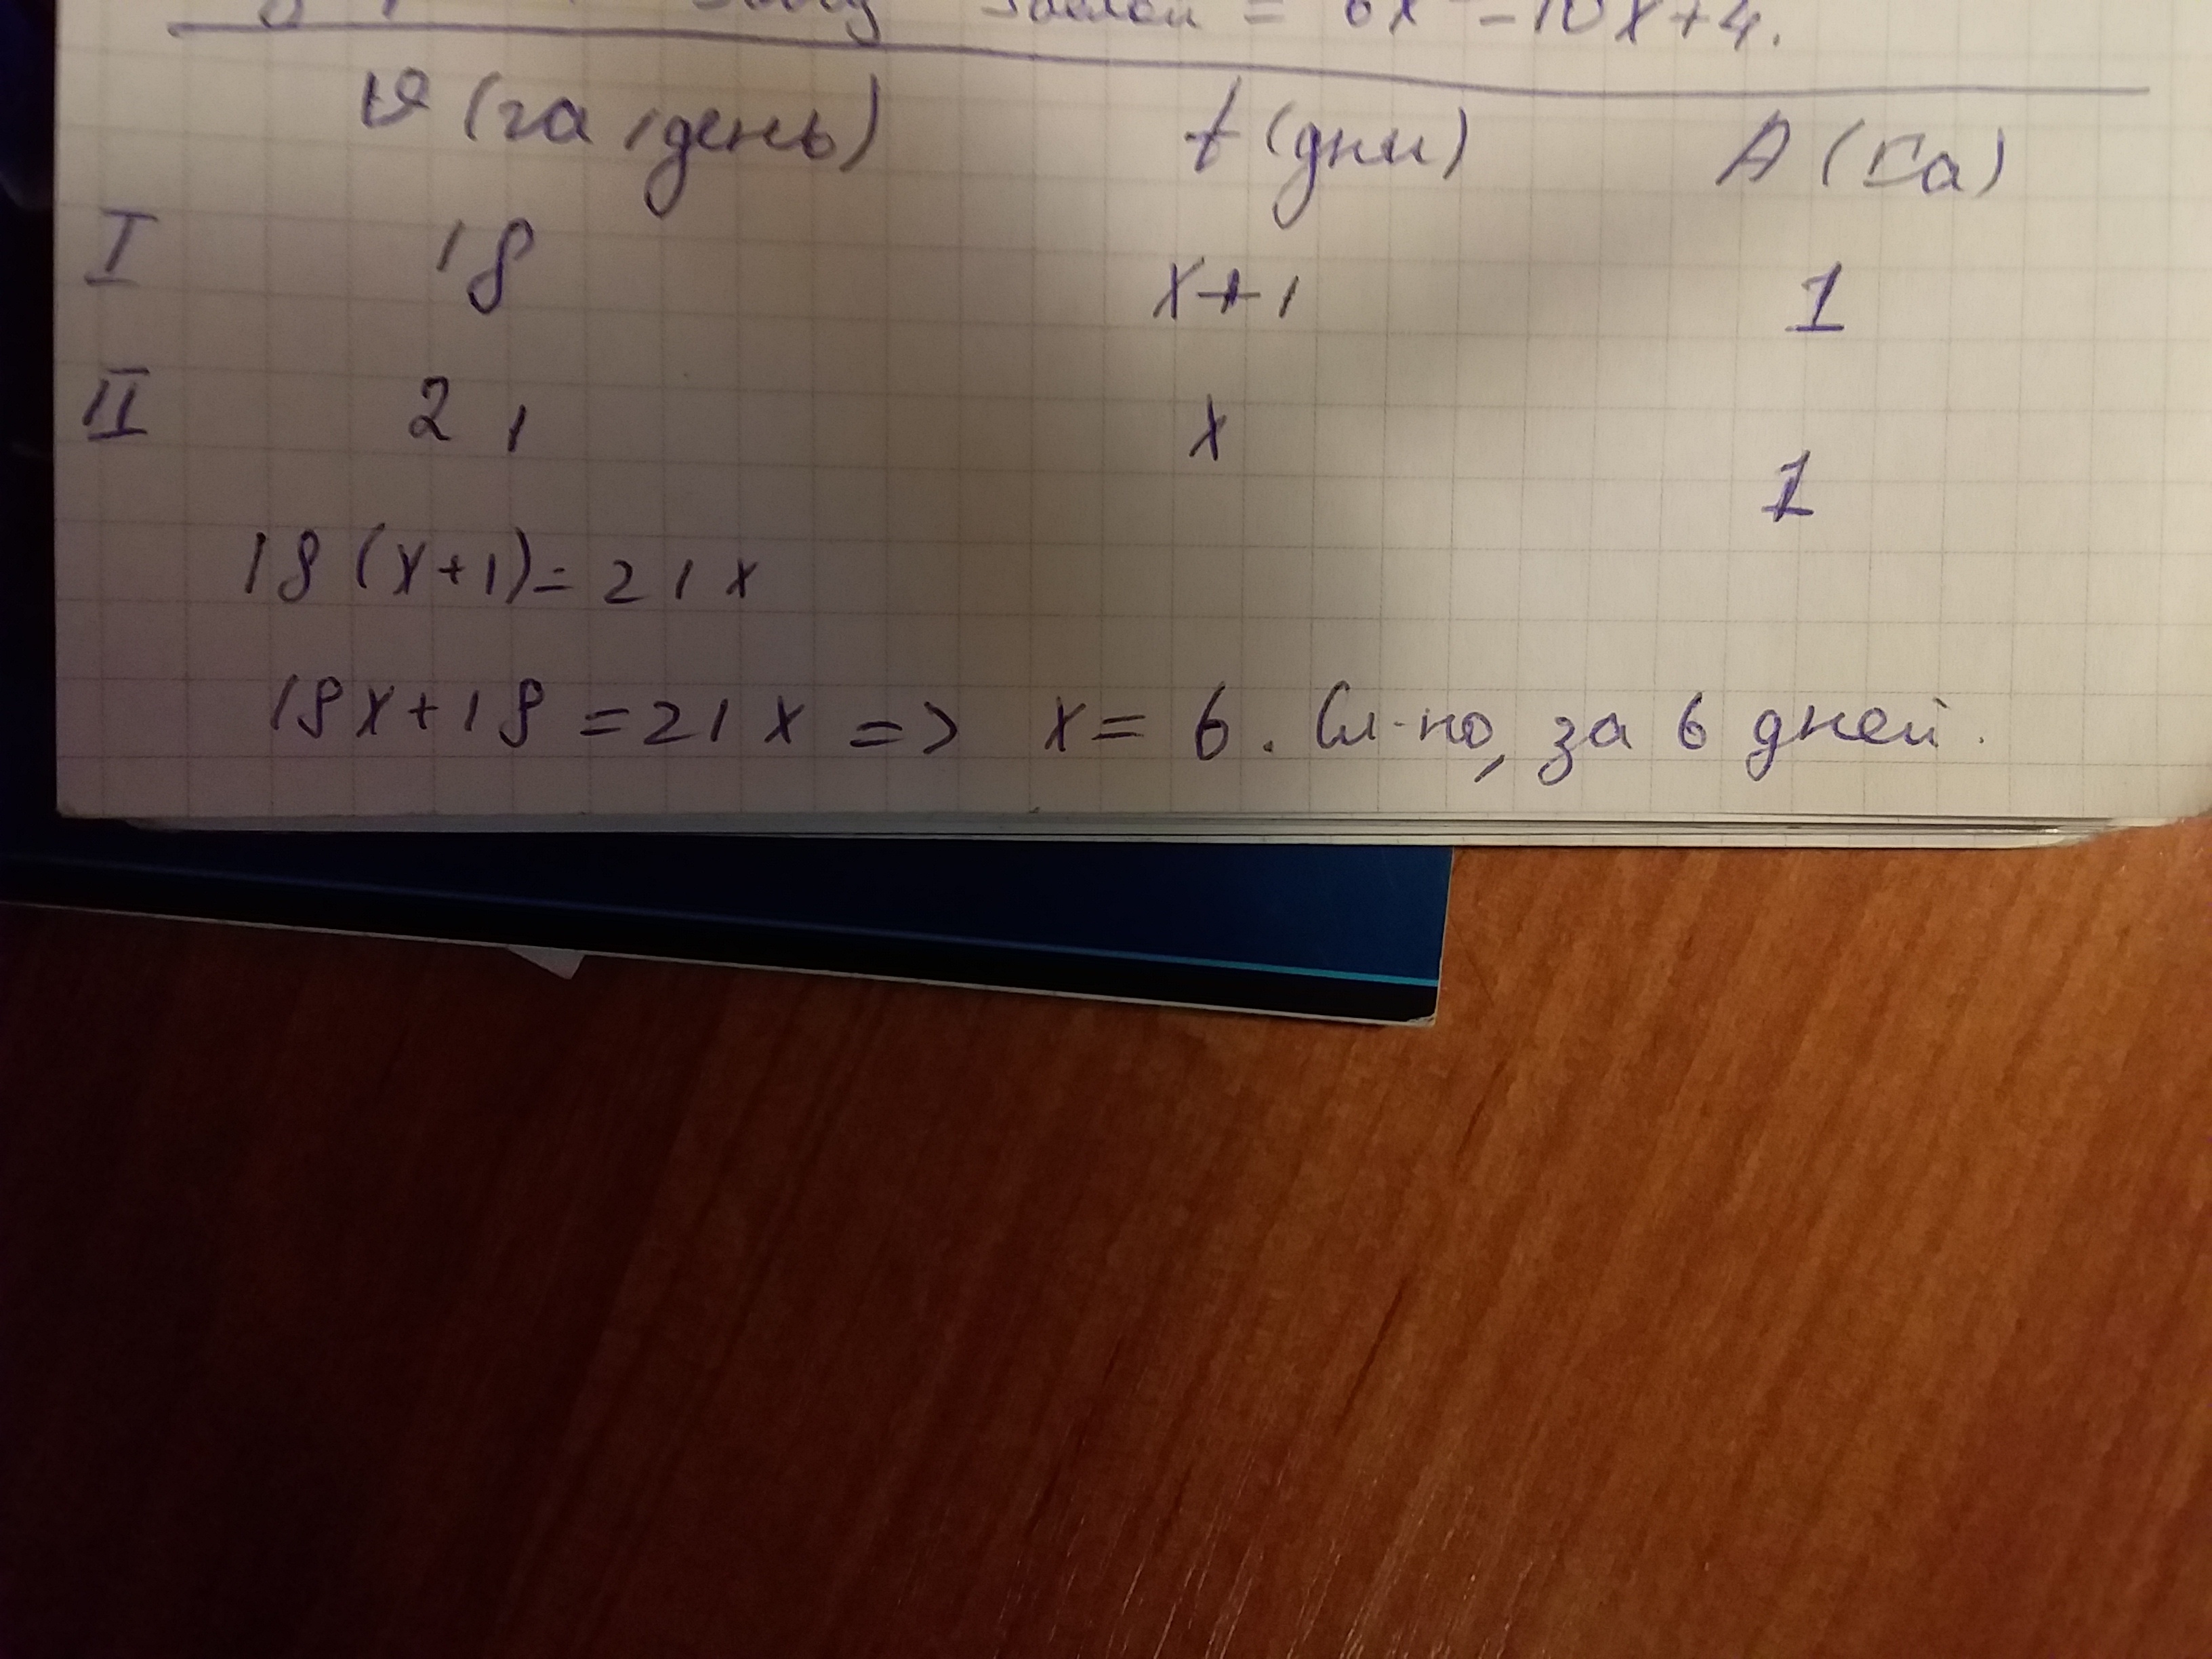 = 6x² - 10x + 4.
v (га/день) t (дни) A (Га)
I 18 x+1 1
II 21 x 1
18 (x+1) = 21x
18x + 18 = 21x => x = 6. Сл-но, за 6 дней.